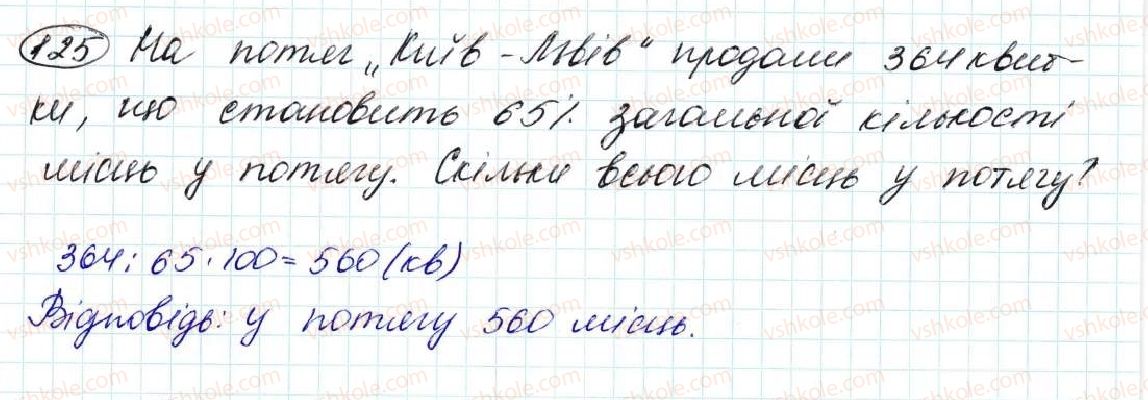 125 На потяг „Київ - Львів“ продали 364 квит-
ки, що становить 65% загальної кількості
місць у потягу. Скільки всього місць у потягу?
364 : 65 · 100 = 560 (кв)
Відповідь: у потягу 560 місць.